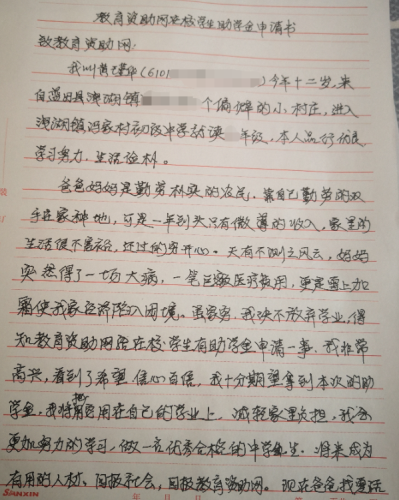 教育资助网在校学生助学金申请书
致教育资助网:
我叫 (610 )今年十二岁,来
自蓝田县洩湖镇 个偏僻的小村庄,进入
洩湖镇冯家村初级中学就读 年级,本人品行优良,
学习努力,生活俭朴。
爸爸妈妈是勤劳朴实的农民,靠自己勤劳的双
手在家种地,可是一年到头只有微薄的收入,家里的
生活很不富裕,还过的穷开心。天有不测之风云,妈妈
突然得了一场大病,一笔巨额医疗费用,更是雪上加
霜使我家经济陷入困境。虽家穷,我决不放弃学业,得
知教育资助网在在校学生有助学金申请一事,我非常
高兴,看到了希望,信心百倍,我十分期望拿到本次的助
学金,我将把费用在自己的学业上,减轻家里负担,我会
更加努力的学习,做一名优秀合格的中学生,将来成为
有用的人材,回报社会,回报教育资助网。现在爸爸找要话
SANXIN 年 月 日